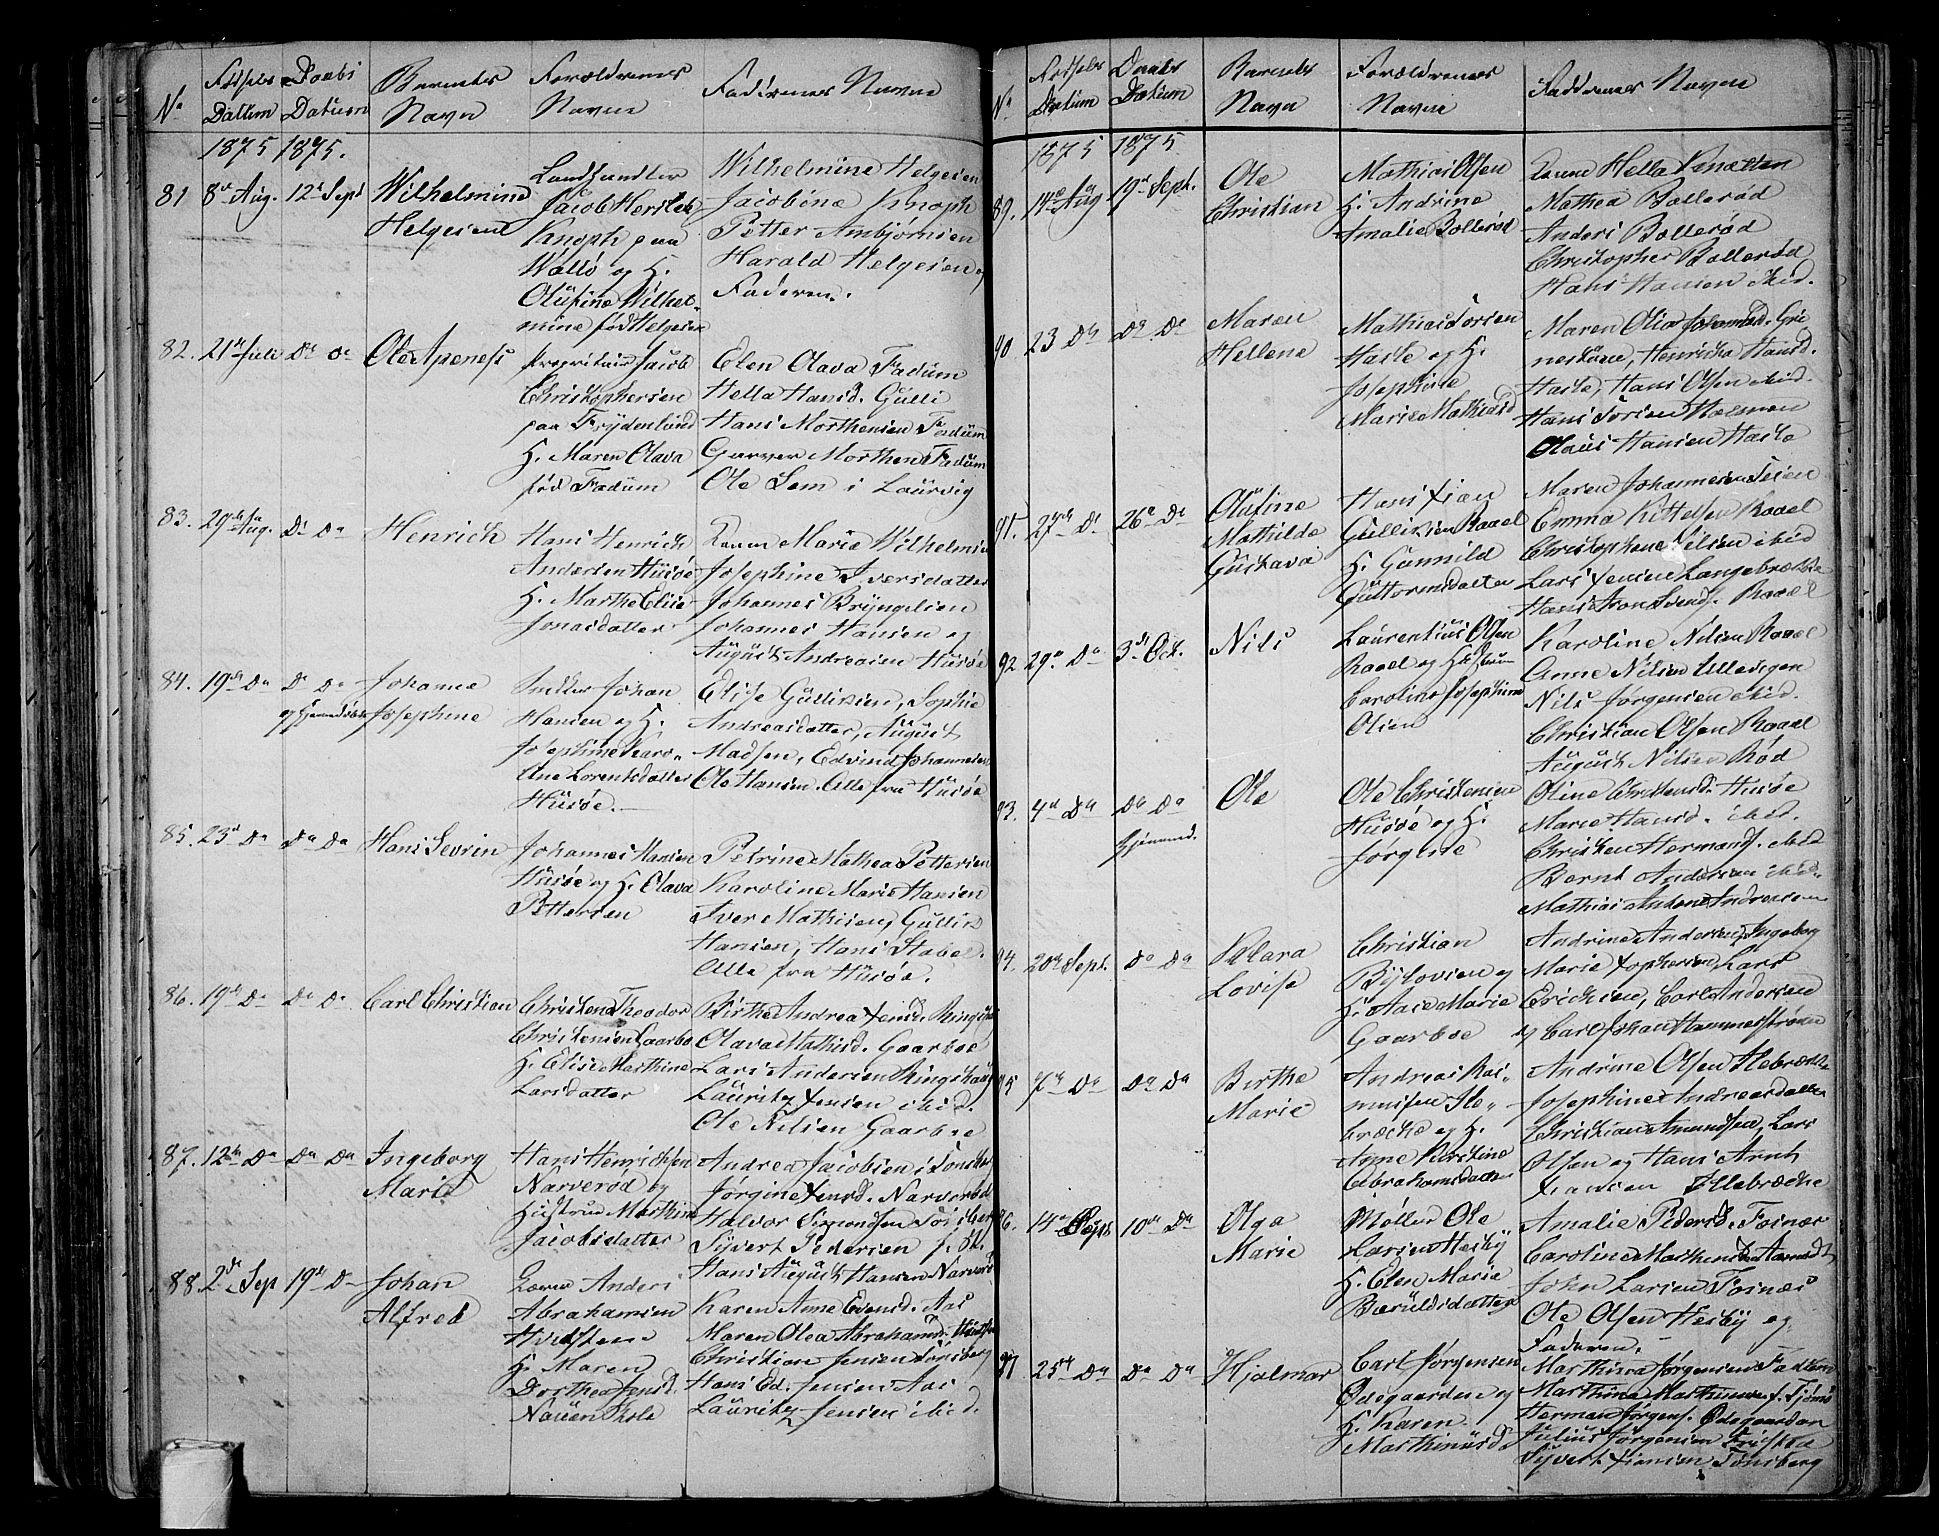 No
Fødsels
Dattum
Daabs
Datum
Barnets
Navn
Forældrenes
Navne
Faddernes Navne
1875 1875.
81 8de Aug. 12te Sept Wilhelmine
Helgesen
Landhandler
Jacob Hersleb
Knoph paa
Vallø og H.
Olufine Wilhel-
mine født Helgesen
Wilhelmine Helgesen
Jacobine Knoph
Petter Ambjørnsen
Harald Helgesen og
Faderen.
82. 21de Juli Do Do Ole Apenes
Proprietair Jacob
Christophersen
paa Frydenlund
H. Maren Olava
fød Fadum
Elen Olava Fadum
Hella Hansd. Gulli
Hans Morthensen Fadum
Garver Morthen Fadum
Ole Sem i Laurvig
83. 29de Aug. Do Do Henrich
Hans Henrich
Andersen Husøe
H. Marthe Elise
Jonasdatter
Konen Marie Wilhelmine
Josephine Iversdatter
Johannes Bryngelsen
Johannes Hansen og
August Andreasen Husøe
84. 19de Do Do Do Johanne
Josephine
Smeden Johan
Hansen og H.
Josephine Karo-
line Lorentsdatter
Husøe.
Elise Gullixsen, Sophie
Andreasdatter, August
Madsen, Edvind Johannesen
Ole Hansen. Alle fra Husøe
85. 23de Do Do Do Hans Sevrin
Johannes Hansen
Husøe og H. Olava
Pettersen
Petrine Mathea Pettersen
Karoline Marie Hansen
Iver Mathisen, Gullik
Hansen, Hans Stabel.
Alle fra Husøe.
86. 19de Do Do Do Carl Christian
Christen Theodor
Christensen Gaarboe
H. Elise Marthine
Larsdatter
Birthe Andrea Jensd. Ringshoug
Olava Mathisd. Gaarboe
Lars Andersen Ringshoug
Lauritz Jensen ibid.
Ole Nilsen Gaarboe
87. 12te Do Do Do Ingeborg
Marie
Hans Henrichsen
Narverød og
Hustrue Marthine
Jacobsdatter
Andrea Jacobsen i Tønsberg
Jørgine Jensd. Narverød
Halvor Sigmondsen Tønsberg
Syvert Pedersen
Hans August Hansen Narverød
88. 2de Sep 19de Do Johan
Alfred
Anders
Abrahamsen
Hvidsteen
H. Maren
Dorthea Jensd.
Karen Anne Evensd. Aas
Maren Olea Abrahamsd.
Christian Jensen Tønsberg
Hans Ed. Jensen Aas
Lauritz Jensen ibid.
No
Fødsels
Datum
Daabs
Datum
Barnets
Navn
Forældrenes
Navne
Faddernes Navne
1875 1875
89. 14de Aug 19de Sept. Ole
Christian
Mathias Olsen
H. Andrine
Amalie Bollerød
Konen Hella Knatten
Mathea Bollerød
Anders Bollerød
Christopher Bollerød
Hans Hansen ibid.
90 23 Do Do Do Maren
Hellene
Mathias Sørsen
Hasle og H.
Josephine
Marie Mathiasd
Maren Olia Johannesd. Gri-
neskoven, Henrikka Hansd.
Hasle, Hans Olsen ibid.
Hans Sørsen Holmen
Olaus Hansen Hasle
91. 27de Do 26de Do Olufine
Mathilde
Gustava
Hans Xian
Gullixsen Raael
H. Gunnild
Guttormsdatter
Maren Johannesen
Emma Kittelsen Raael
Christophene Nilsen ibid
Lars Jensen Langebrække
Hans Svends. Raael
92 29de Do 3de Oct. Nils
Laurentius Olsen
Raael og Hustrue
Caroline Josephine
Olsen
Karoline Nilsen Raael
Anne Nilsen Ullevigen
Nils Jørgensen ibid.
Christian Olsen Raael
August Nilsen Rød
93. 4de Do Do Do
hjemmd.
Ole
Ole Christensen
Husøe og H.
Jørgine
Oline Christensd. Husøe
Marie Hansd. ibid.
Christen Hermands. ibid
Bernt Andersen ibid.
Mathias Anton Andersen
94. 20de Sept. Do Do Klara
Lovise
Christian
og
H. Aase Marie
Gaarboe
Andrine Andersen, Ingeborg
Marie Xophersen, Lars
Erichsen, Carl Andersen
og Carl Johan Hammerstrøm
95 7de Do Do Do Birthe
Marie
Andreas Ras-
musen Ile-
bræche og H.
Anne Kirstine
Abrahamsdatter
Andrine Olsen Ilebrække
Josephine Andreasdatter
Christian Amundsen, Lars
Olsen og Hans Arnt
Hansen Illebræche
96. 14de Sept 10de Do Olga
Marie
Møller Ole
Larsen Hesby
H. Elen Marie
Bæruldsdatter
Amalie Pedersd. Foinæs
Caroline
John Larsen Foinæs
Ole Olsen Hesby og
Faderen.
97 25de Do Do Do Hjalmar
Carl Jørgensen
Ødegaarden og
H. Karen
Marthinusd.
Marthina Jørgensen Fadum
Marthine Marthinsen f. Tjømø
Herman Jørgens. Ødegaarden
Julius Jørgensen
Syvert Hansen Tønsberg